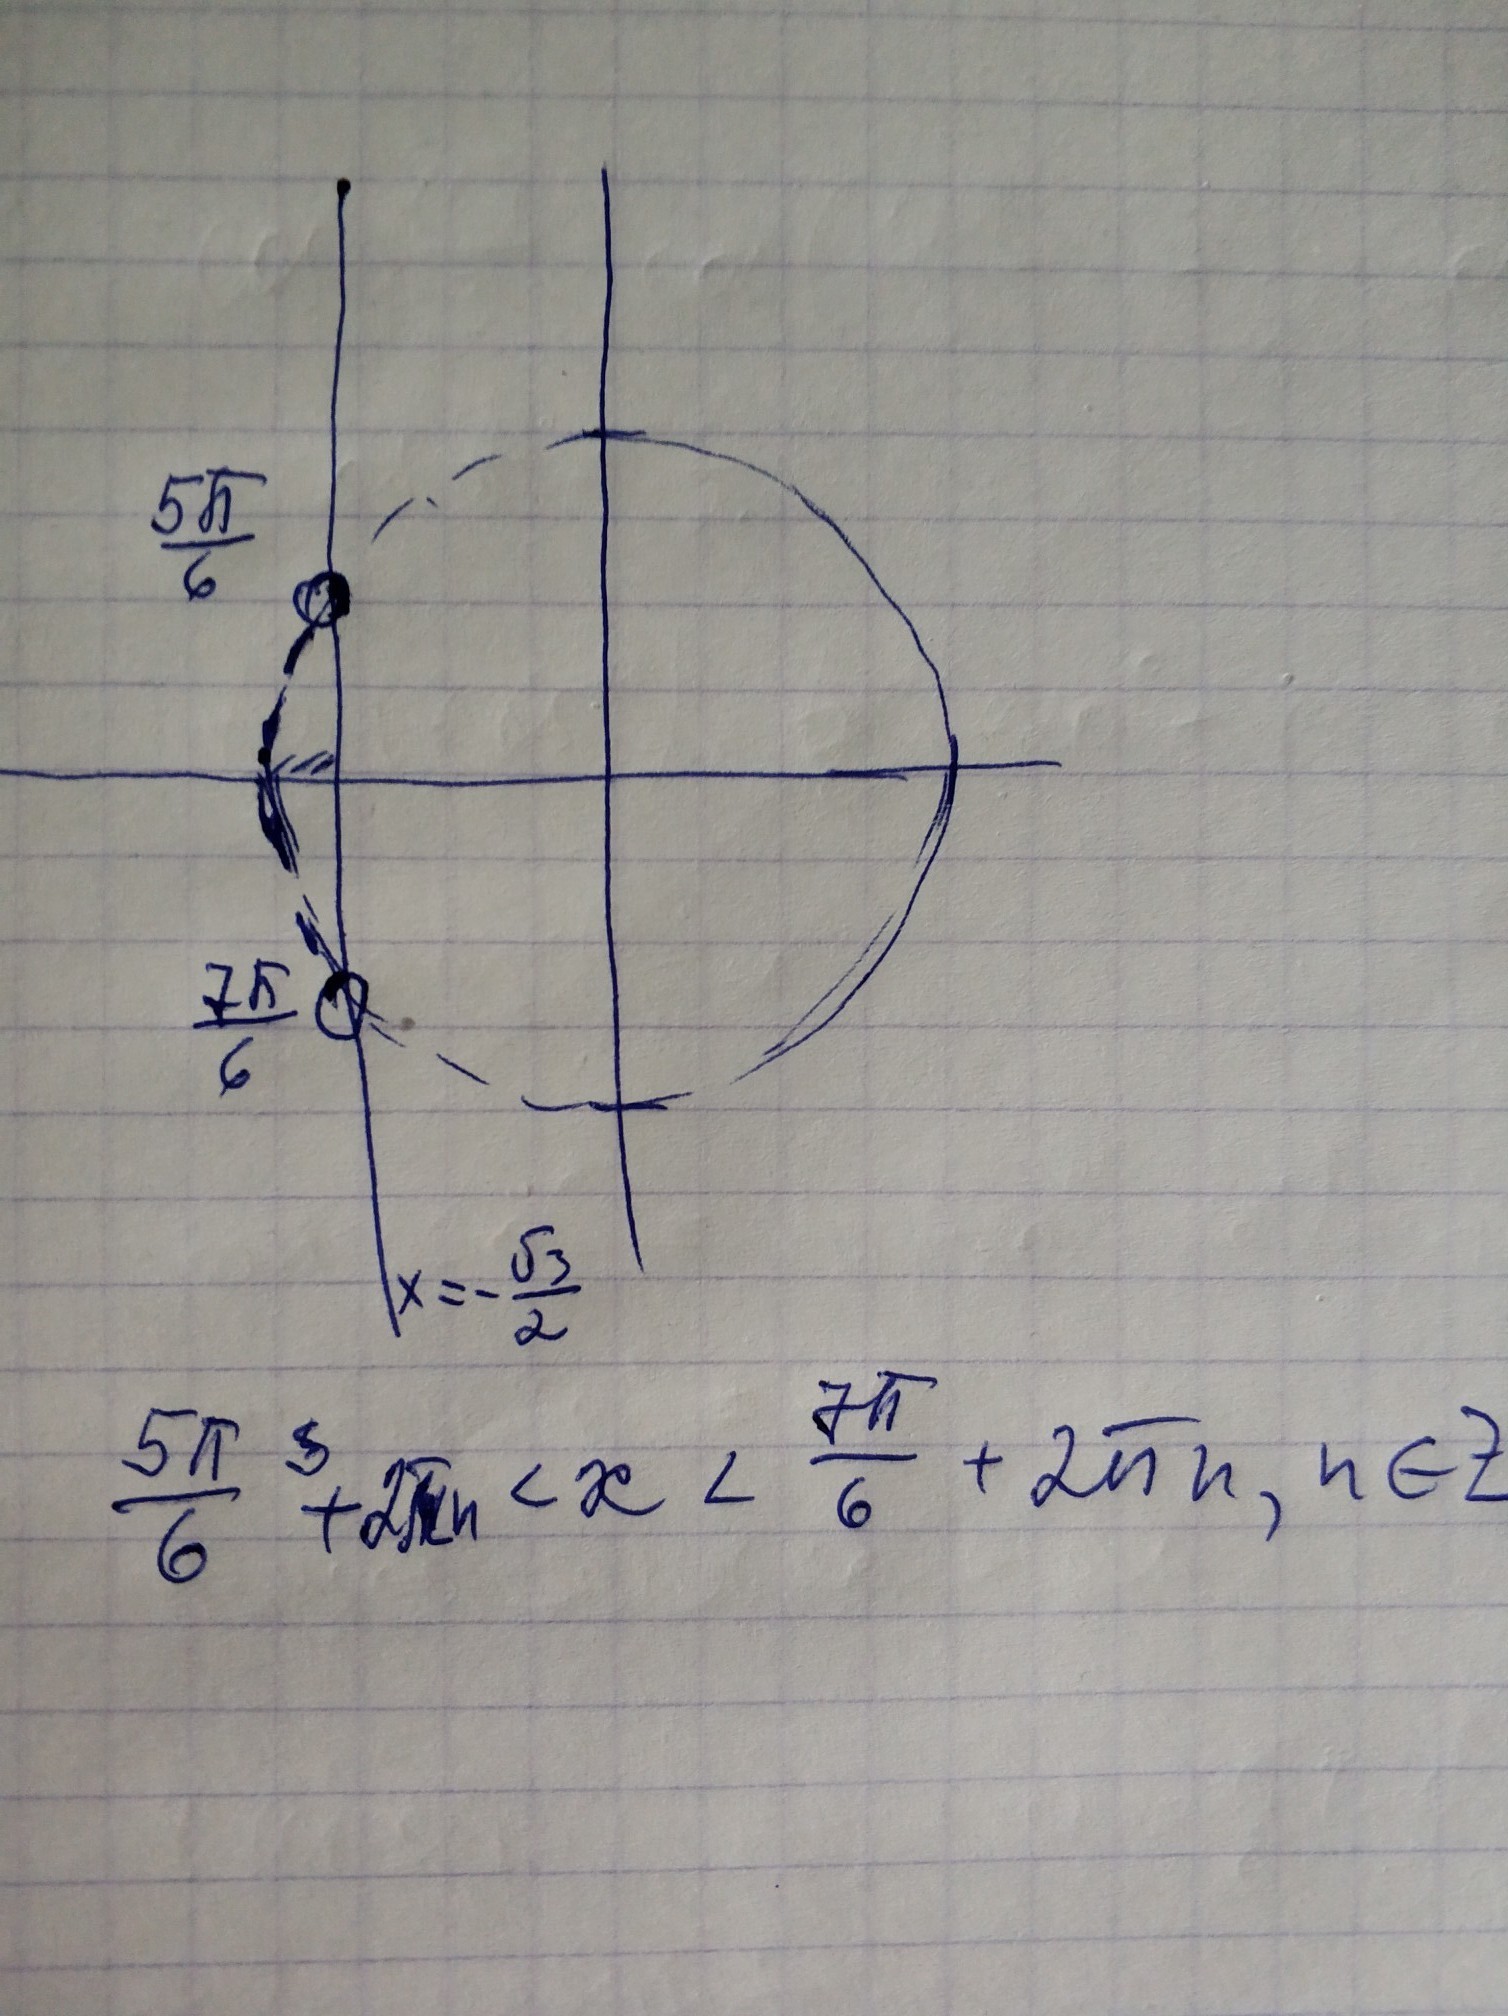 5π/6
7π/6
x = -√3/2
5π/6 + 2πn < x < 7π/6 + 2πn, n ∈ Z